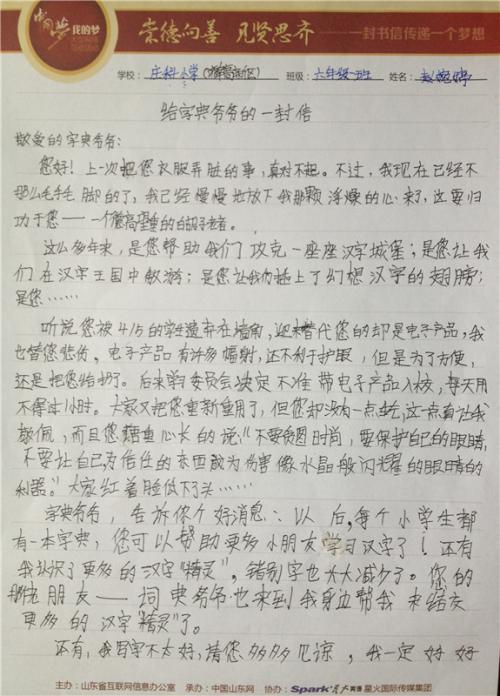 中国梦 我的梦
崇德向善 见贤思齐 一封书信传递一个梦想
学校：庄科小学 班级：六年级一班 姓名：
给字典爷爷的一封信
敬爱的字典爷爷：
您好！上一次把您衣服弄脏的事，真对不起。不过，我现在已经不
那么毛手毛脚的了，我已经慢慢地放下我那颗浮燥的心来了，这要归
功于您——一个德高望重的白胡子老者。
这么多年来，是您帮助我们攻克一座座汉字城堡；是您让我
们在汉字王国中敖游；是您让我们插上了幻想汉字的翅膀；
是您……
听说您被4/5的学生遗弃在墙角，迎来替代您的却是电子产品，我
也替您悲伤。电子产品有许多辐射，还不利于护眼，但是为了方便，
还是把您给扔了。后来 委员会决定不准带电子产品入校，每天用
不得过1小时。大家又把您重新重用了，但您却没有一点 ，这一点着让我
敬佩，而且您语重心长的说：“不要贪图时尚，要保护自己的眼睛，
不要让自己为信任的东西成为伤害像水晶般闪耀的眼睛的
利器。”大家红着脸低下了头……
字典爷爷，告诉你个好消息：以后，每个小学生都
有一本字典，您可以帮助更多小朋友学习汉字了！还有
我认识了更多的“汉字精灵”，错别字也大大减少了。您的
朋友——词典爷爷也来到我身边帮我来结交
更多的汉字“精灵”了。
还有，我写字不太好，请您多多见谅，我一定好好
主办：山东省互联网信息办公室 承办：中国山东网 协办：Spark 星火英语 星火国际传媒集团